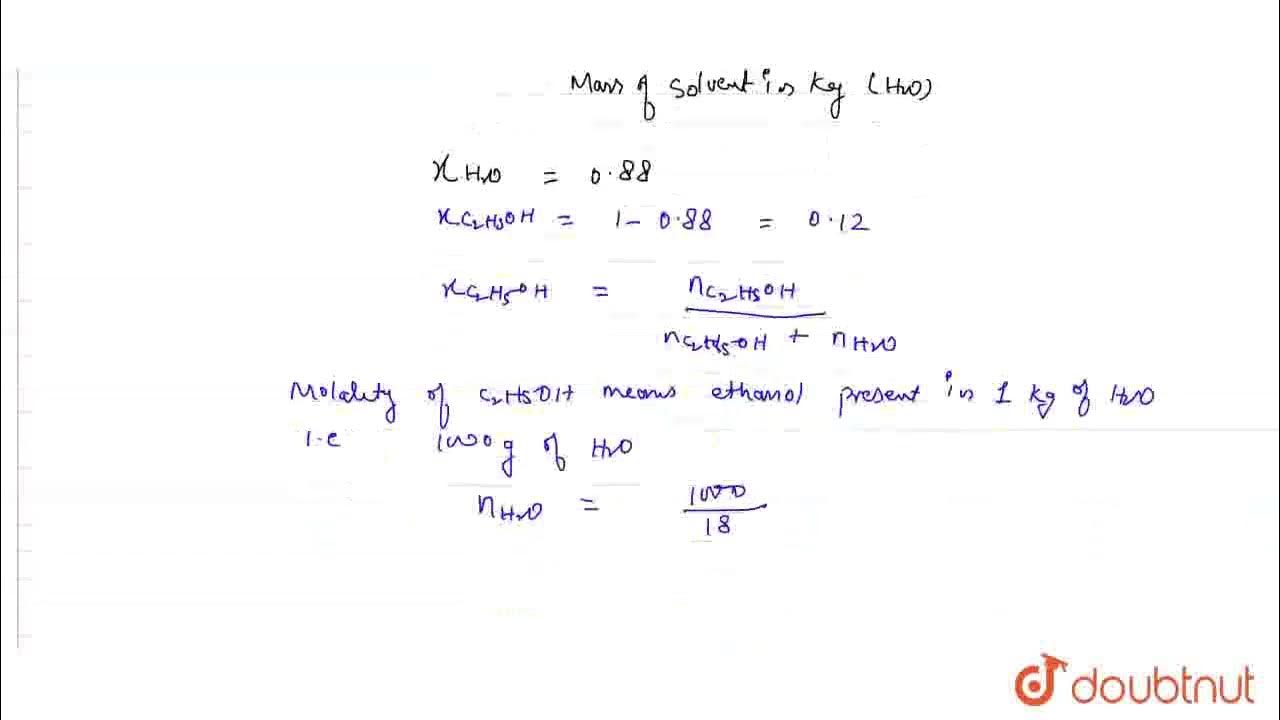 Mass of solvent in kg (H2O)
xH2O = 0.88
xC2H5OH = 1 - 0.88 = 0.12
xC2H5OH = nC2H5OH
nC2H5OH + nH2O
Molality of C2H5OH means ethanol present in 1 kg of H2O
i.e 1000g of H2O
nH2O = 1000
18
doubtnut